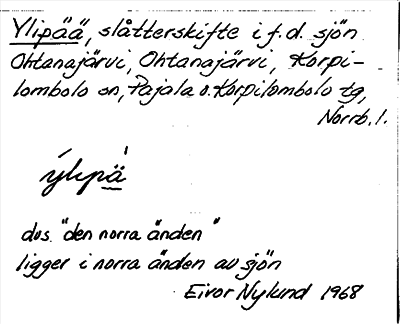 Ylipää, slåtterskifte i f.d. sjön
Ohtanajärvi, Ohtanajärvi, Korpi-
lombolo sn, Pajala o. Korpilombolo tg,
Norrb. l.
ýlipä̱́
dvs. "den norra änden"
ligger i norra änden av sjön
Eivor Nylund 1968